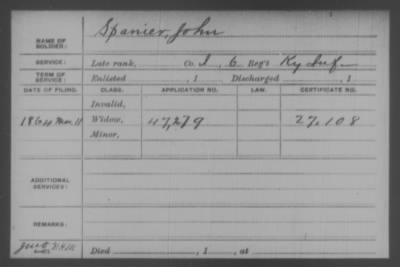 NAME OF SOLDIER: Spanier, John
SERVICE: Late rank, Co. I, 6 Reg't Ky Inf.
TERM OF SERVICE: Enlisted , 1 Discharged , 1
DATE OF FILING. CLASS. APPLICATION NO. LAW. CERTIFICATE NO.
Invalid,
1864 Mar. 11 Widow, 47,279 27,108
Minor,
ADDITIONAL SERVICES:
REMARKS:
Died , 1 , at